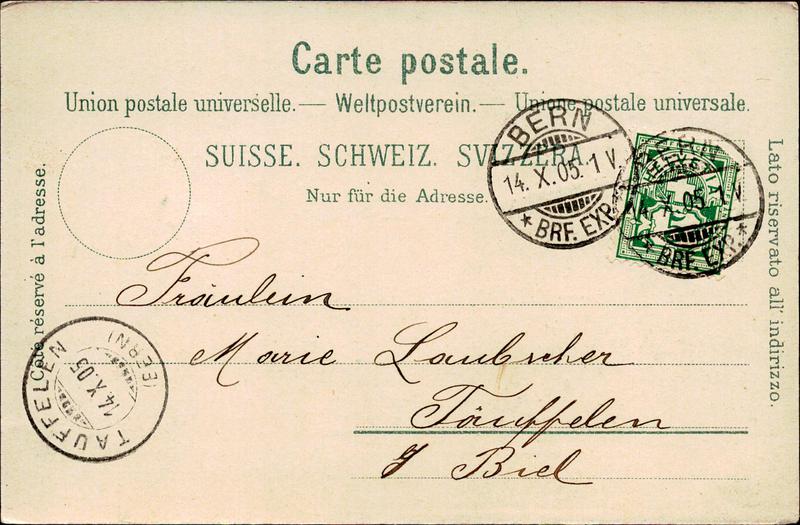 Carte postale.
Union postale universelle. — Weltpostverein. — Unione postale universale.
SUISSE. SCHWEIZ. SVIZZERA.
Nur für die Adresse.
Côté réservé à l'adresse.
Lato riservato all' indirizzo.
BERN
14. X. 05. 1 V.
* BRF. EXP.
HELVETIA
14. X. 05. 1 V.
BRF. EXP. *
Fräulein
Marie Laubscher
Täuffelen
Biel
TAUFFELEN
14. X. 05
(BERN)